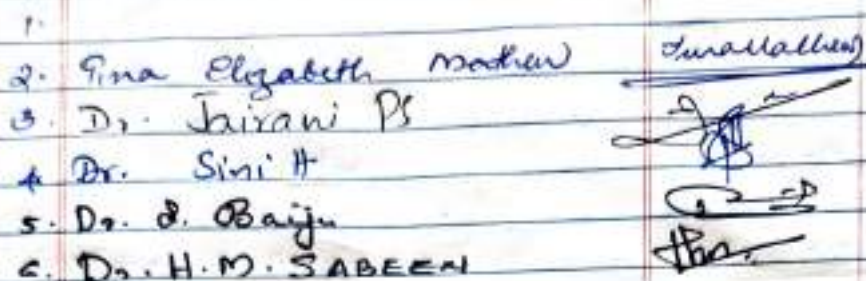 1.
2. Tina Elizabeth Mathew TinaMathew
3. Dr. Jairani PS
4. Dr. Sini H
5. Dr. S. Baiju
6. Dr. H.M. SABEEN